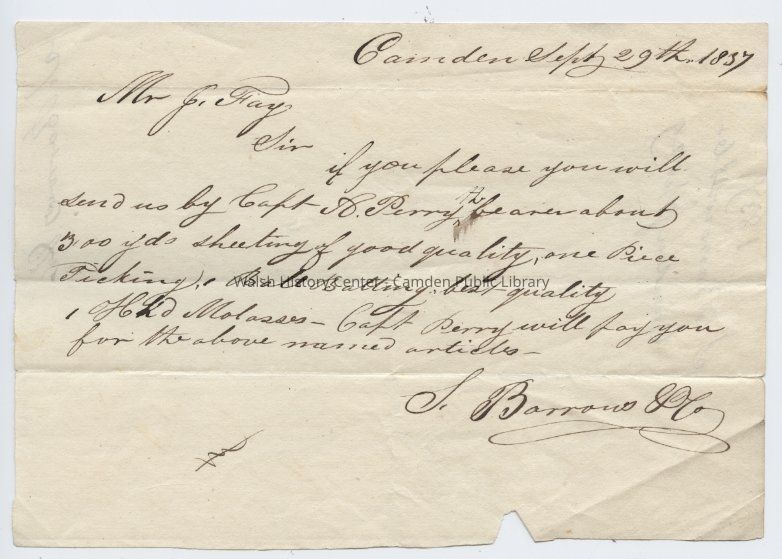 Camden Sept 29th. 1837
Mr J. Fay
Sir
if you please you will
send us by Capt A. Perry the bearer about
300 yds sheeting of good quality, one Piece
Ticking, 1 Bale Batting best quality
1 Hhd Molasses - Capt Perry will pay you
for the above named articles -
S. Barrows & Co
Walsh History Center - Camden Public Library